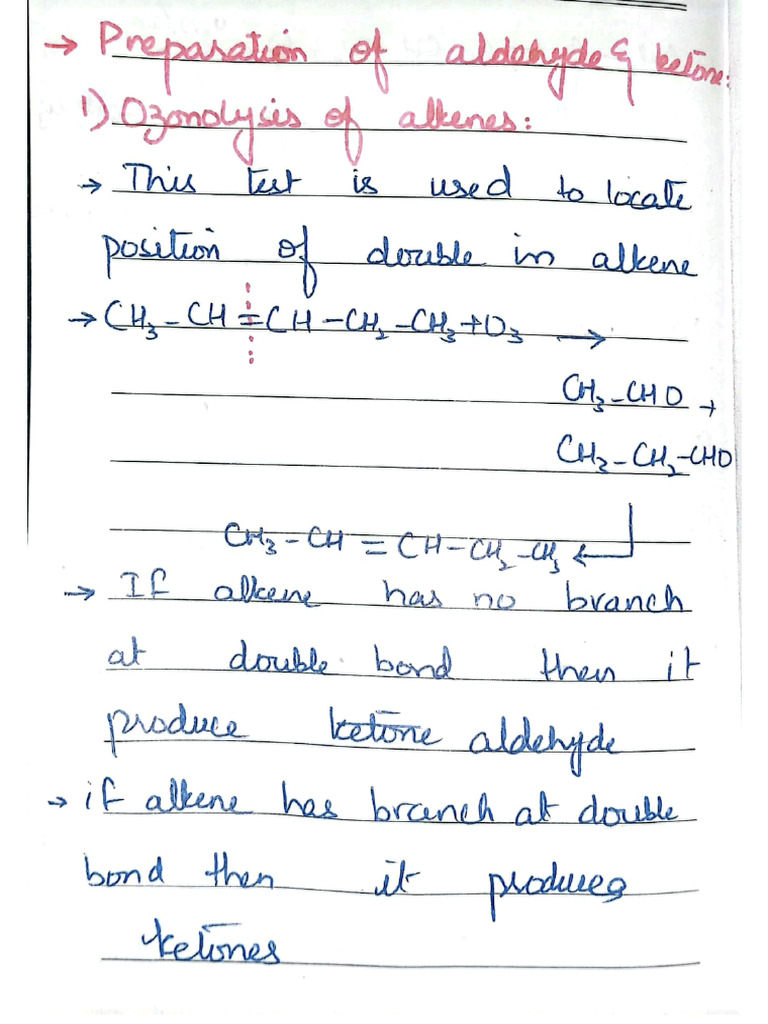 → Preparation of aldehyde & ketone:
1) Ozonolysis of alkenes:
→ This test is used to locate
position of double in alkene
→ CH₃ - CH = CH - CH₂ - CH₃ + O₃ →
CH₃ - CHO +
CH₃ - CH₂ - CHO
CH₃ - CH = CH - CH₂ - CH₃ ←
→ If alkene has no branch
at double bond then it
produce ketone aldehyde
→ if alkene has branch at double
bond then it produces
ketones